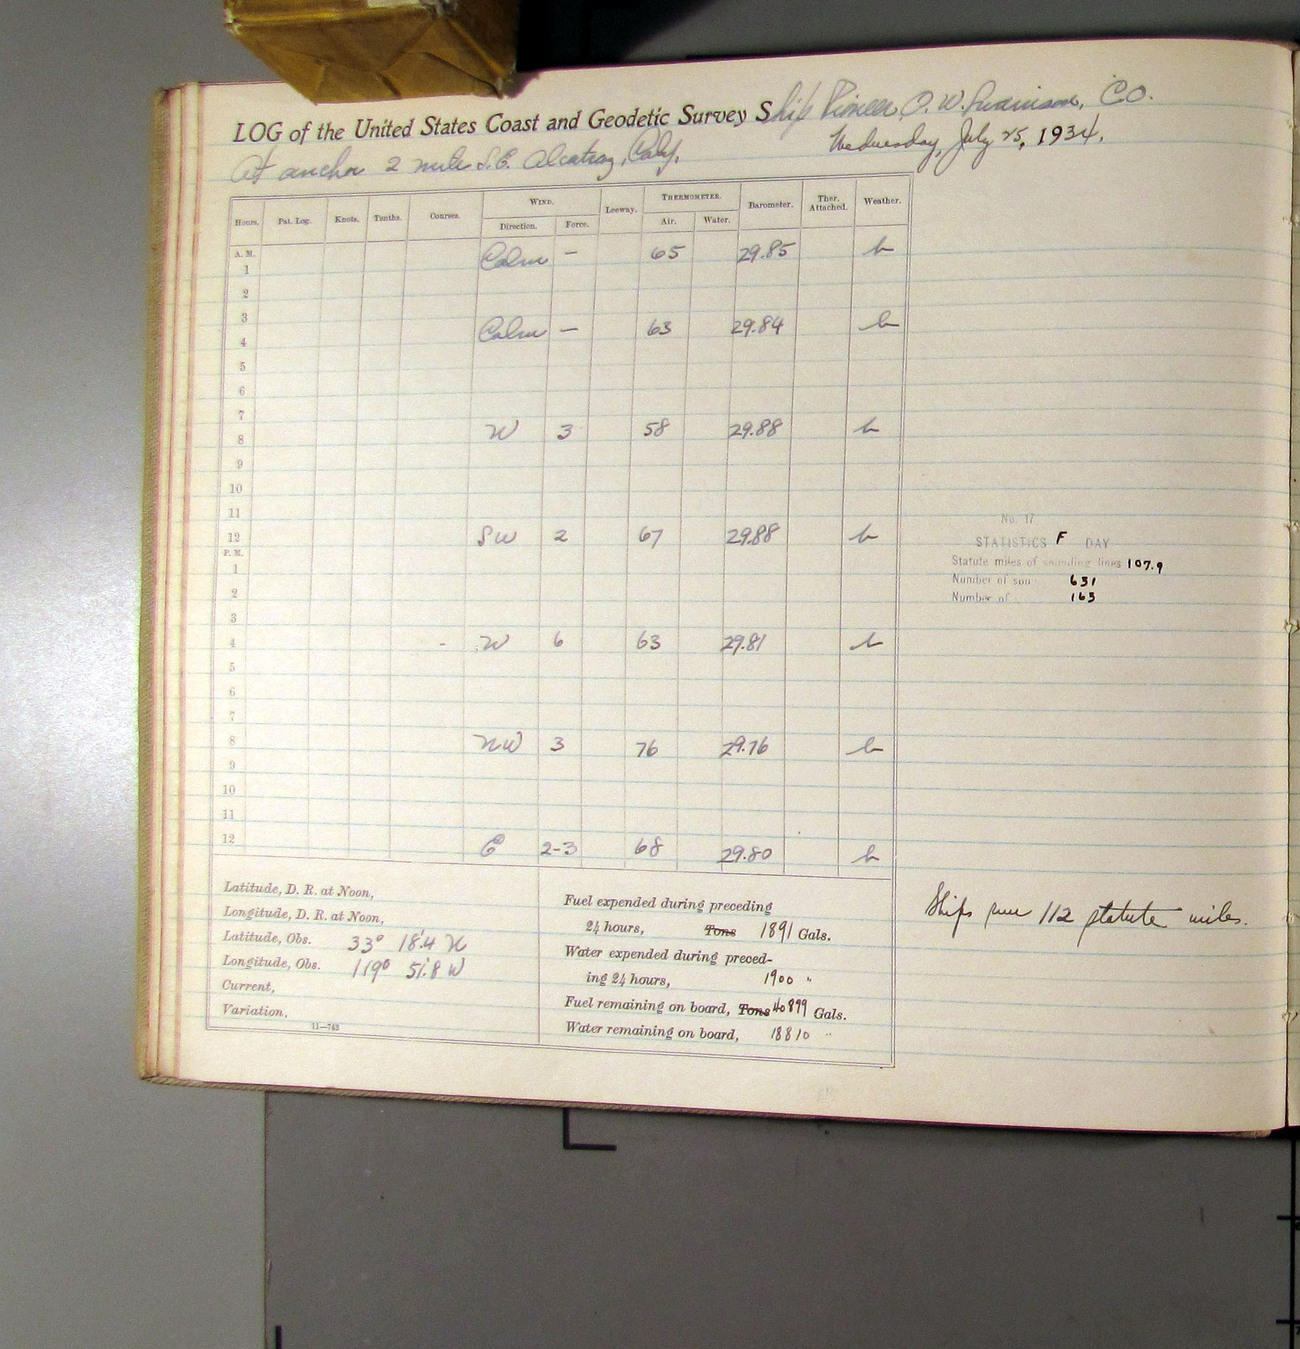 LOG of the United States Coast and Geodetic Survey Ship Pioneer O. W. Swainson, C.O.
At anchor 2 mile S.E. Alcatraz, Calif. Wednesday, July 25, 1934.
Hours. Pat. Log. Knots. Tenths. Courses. WIND. Leeway. THERMOMETER. Barometer. Ther. Attached. Weather.
Direction. Force. Air. Water.
A. M.
1 Calm — 65 29.85 b
2
3
4 Calm — 63 29.84 b
5
6
7
8 W 3 58 29.88 b
9
10
11
12 SW 2 67 29.88 b
P. M.
1
2
3
4 W 6 63 29.81 b
5
6
7
8 NW 3 76 29.76 b
9
10
11
12 E 2-3 68 29.80 b
No. 17
STATISTICS F DAY
Statute miles of sounding lines 107.9
Number of sou 631
Number of 163
Ships run 112 statute miles.
Latitude, D. R. at Noon,
Longitude, D. R. at Noon,
Latitude, Obs. 33° 18'.4 N
Longitude, Obs. 119° 51'.8 W
Current,
Variation,
11—743
Fuel expended during preceding
24 hours, Tons 1891 Gals.
Water expended during preced-
ing 24 hours, 1900 "
Fuel remaining on board, Tons 40899 Gals.
Water remaining on board, 18810 "